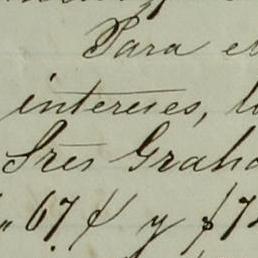 Para e
intereses, l
Sres Graha
67 ₵ y $7